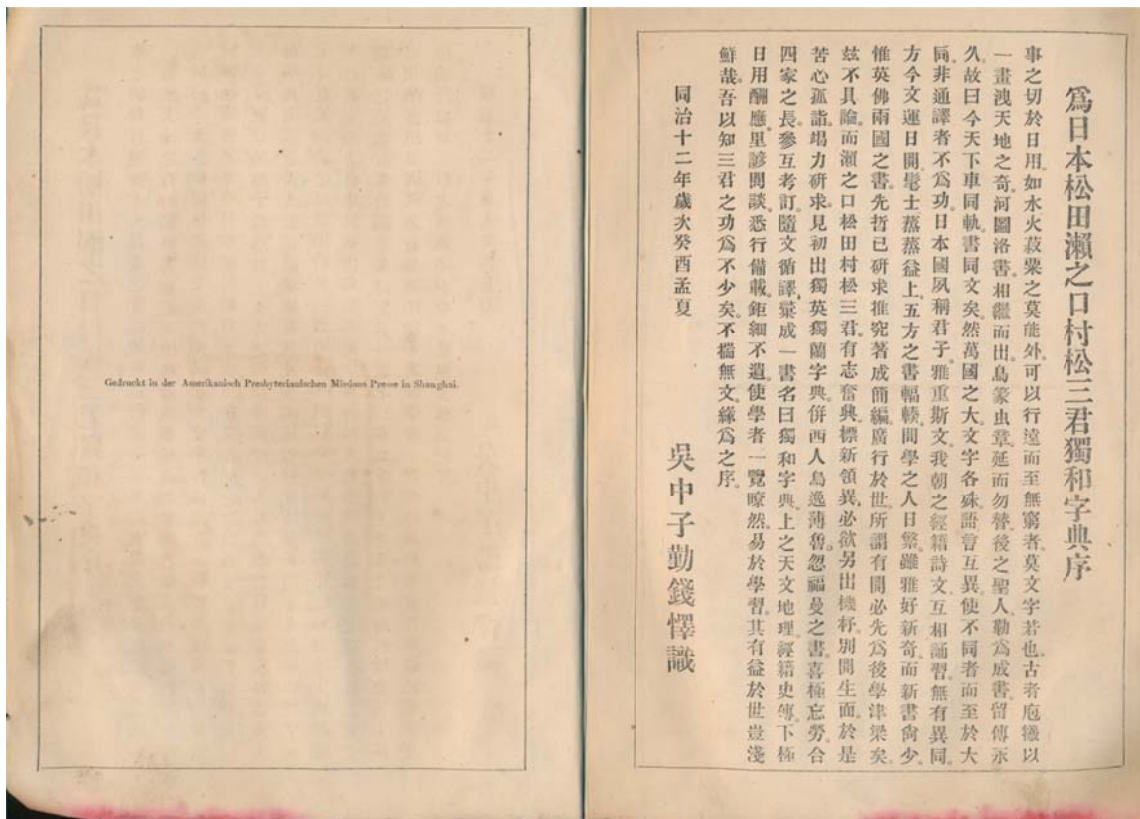 爲日本松田瀨之口村松三君獨和字典序
事之切於日用。如水火菽粟之莫能外。可以行遠而至無窮者。莫文字若也。古者庖犧以
一畫洩天地之奇。河圖洛書。相繼而出。鳥篆虫章。延而勿替。後之聖人。勒爲成書。留傳永
久。故曰今天下車同軌。書同文矣。然萬國之大。文字各殊。語言互異。使不同者而至於大
同。非通譯者不爲功。日本國夙稱君子。雅重斯文。我朝之經籍詩文。互相誦習。無有異同。
方今文運日開。髦士蒸蒸益上。五方之書輻輳。間學之人日繁。雖雅好新奇。而新書尙少。
惟英佛兩國之書。先哲已硏求推究。著成簡編。廣行於世。所謂有開必先。爲後學津梁矣。
玆不具論。而瀨之口松田村松三君。有志奮興。標新領異。必欲另出機杼。別開生面。於是
苦心孤詣。竭力硏求。見初出獨英獨蘭字典。倂西人鳥逸薄魯。忽福曼之書。喜極忘勞。合
四家之長。參互考訂。隨文循譯。彙成一書。名曰獨和字典。上之天文地理。經籍史傳。下極
日用酬應。里諺閒談。悉行備載。鉅細不遺。使學者一覽瞭然。易於學習。其有益於世豈淺
鮮哉。吾以知三君之功爲不少矣。不揣無文。緣爲之序。
同治十二年歲次癸酉孟夏
吳中子勤錢懌識
Gedruckt in der Amerikanisch Presbyterianischen Missions Presse in Shanghai.